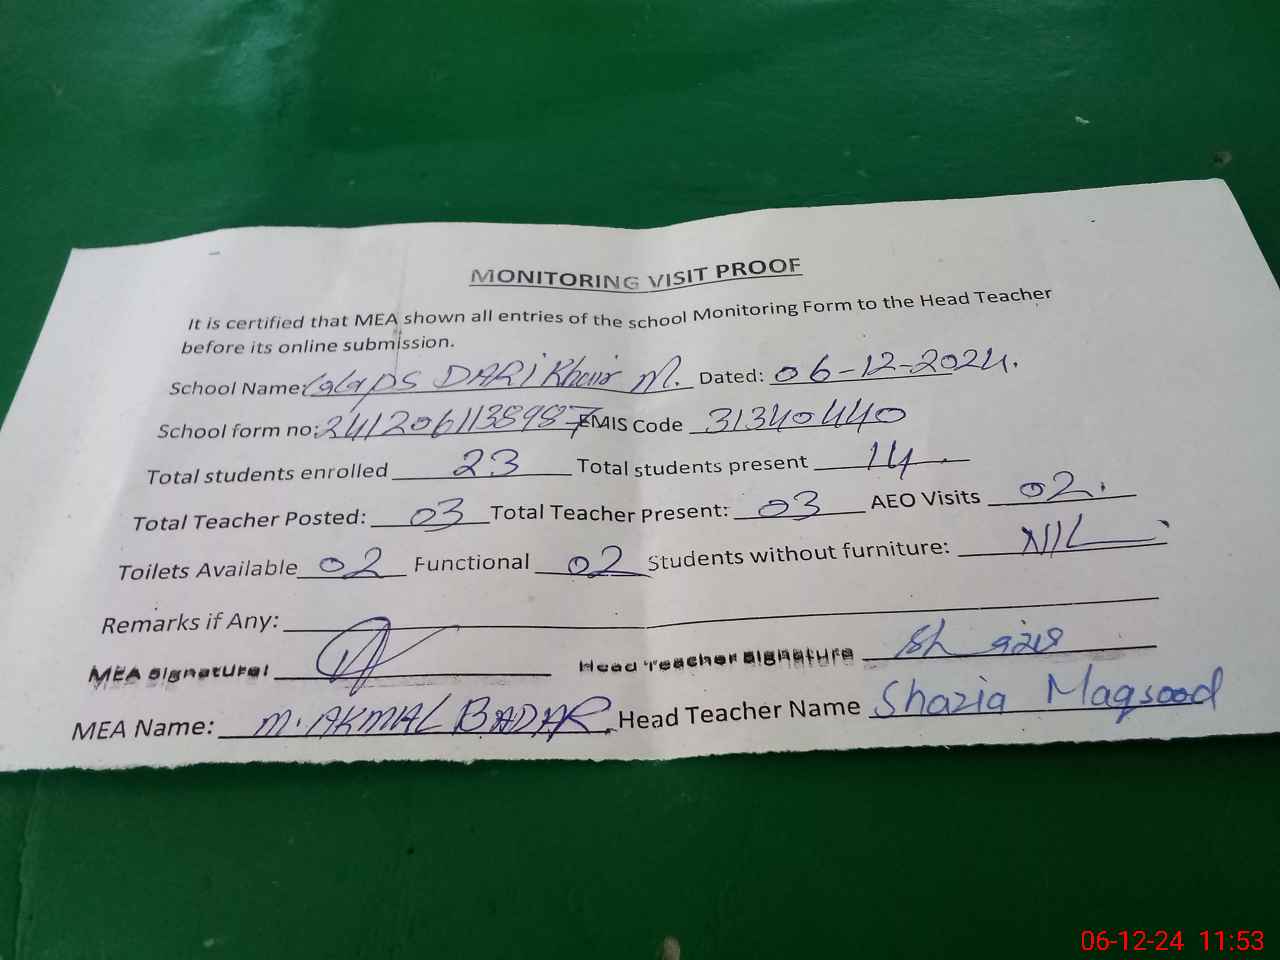 MONITORING VISIT PROOF
It is certified that MEA shown all entries of the school Monitoring Form to the Head Teacher
before its online submission.
School Name: GGPS DARi Khair M. Dated: 06-12-2024.
School form no: 2412061138987 EMIS Code 31340440
Total students enrolled 23 Total students present 14
Total Teacher Posted: 03 Total Teacher Present: 03 AEO Visits 02.
Toilets Available 02 Functional 02 Students without furniture: NIL
Remarks if Any:
MEA Signatural Head Teacher Signature Shazia
MEA Name: M. AKMAL BADAR. Head Teacher Name Shazia Maqsood
06-12-24 11:53